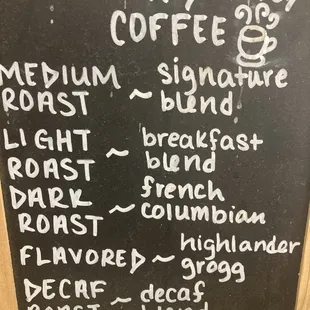 COFFEE
MEDIUM ROAST ~ signature blend
LIGHT ROAST ~ breakfast blend
DARK ROAST ~ french columbian
FLAVORED ~ highlander grogg
DECAF ROAST ~ decaf blend